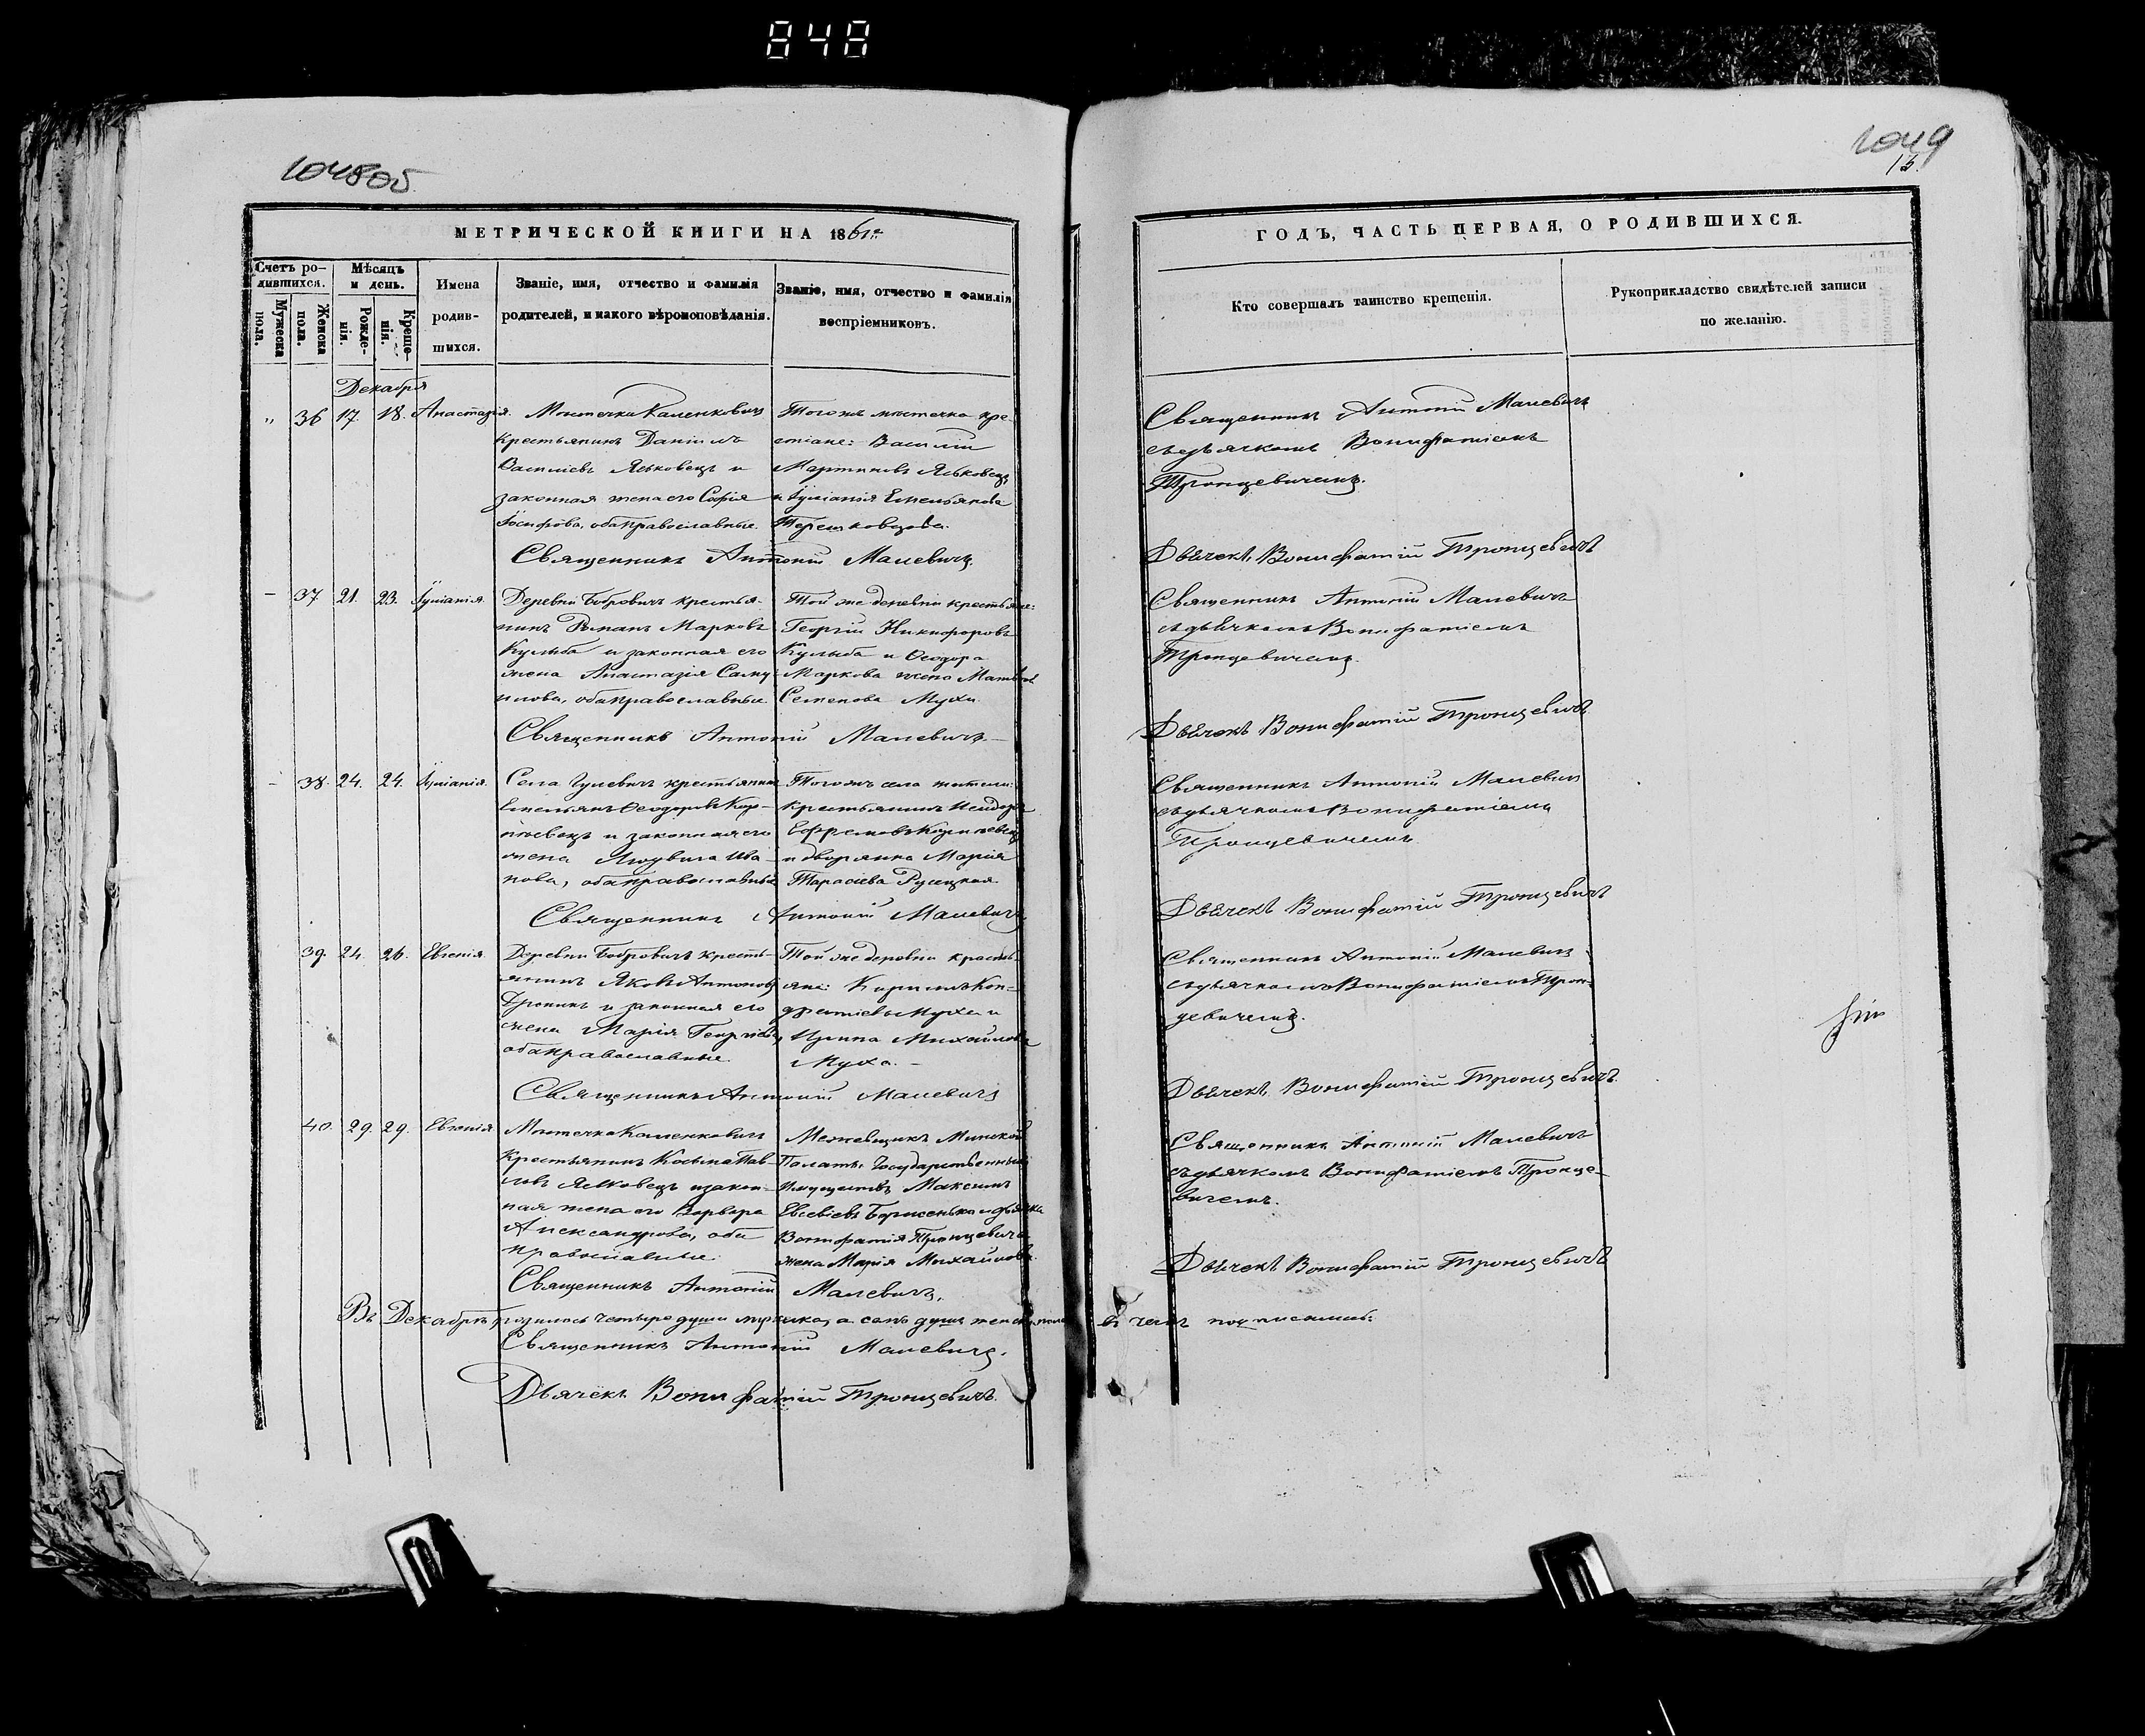 848
104805
1049
15.
МЕТРИЧЕСКОЙ КНИГИ НА 1861г.
ГОДЪ, ЧАСТЬ ПЕРВАЯ, О РОДИВШИХСЯ.
Счетъ ро-
дившихся.
Мужеска пола.
Женска пола.
Мѣсяцъ
и день.
Рожде-
нія.
Креще-
нія.
Имена
родив-
шихся.
Званіе, имя, отчество и фамилія
родителей, и какого вѣроисповѣданія.
Званіе, имя, отчество и фамилія
воспріемниковъ.
Кто совершалъ таинство крещенія.
Рукоприкладство свидѣтелей записи
по желанію.
Декабря
„ 36 17. 18. Анастазія.
Мѣстечка Каменковичъ
крестьянинъ Даніилъ
Василіевъ Яськовецъ и
законная жена его Софія
Іосифова, оба православные.
Тогожъ мѣстечка кре-
стіане: Василій
Мартиновъ Яськовецъ
и Іуліанія Емельянова
Терешковцова.
Священникъ Антоній Малевичъ
съ дьячкомъ Вонифатіемъ
Тронцевичемъ.
Священникъ Антоній Малевичъ.
Дьячекъ Вонифатій Тронцевичъ
- 37 21. 23. Іуліанія.
Деревни Бобровичъ крестья-
нинъ Романъ Марковъ
Кульба и законная его
жена Анастазія Саму-
илова, оба православные
Той же деревни крестьяне:
Георгій Никифоровъ
Кульба и Ѳеодора
Маркова жена Матвея
Семенова Мухи.
Священникъ Антоній Малевичъ
съ дьячкомъ Вонифатіемъ
Тронцевичемъ.
Священникъ Антоній Малевичъ.
Дьячекъ Вонифатій Тронцевичъ
- 38. 24. 24. Іуліанія.
Села Гулевичъ крестьянинъ
Емельянъ Ѳеодоровъ
и законная его
жена Людвига Ива-
нова, оба православные
Тогожъ села жители:
крестьянинъ Исидоръ
Ефремовъ
и дворянка Марія
Тарасіева Русецкая.
Священникъ Антоній Малевичъ
съ дьячкомъ Вонифатіемъ
Тронцевичемъ
Священникъ Антоній Малевичъ
Дьячекъ Вонифатій Тронцевичъ
39. 24. 26. Евгенія.
Деревни Бобровичъ кресть-
янинъ Яковъ Антоновъ
и законная его
жена Марія Георгіева,
оба православные.
Той же деревни кресть-
яне: Кирилъ Кон-
дратіевъ Муха и
Ирина Михайлова
Муха. -
Священникъ Антоній Малевичъ
съ дьячкомъ Вонифатіемъ Трон-
цевичемъ.
Священникъ Антоній Малевичъ
Дьячекъ Вонифатій Тронцевичъ.
40. 29. 29. Евгенія
Мѣстечка Каменковичъ
крестьянинъ Косьма Пав-
ловъ Яськовецъ и закон-
ная жена его Варвара
Александрова, оба
православные.
Межевщикъ Минской
Палаты Государственныхъ
Имуществъ Максимъ
Евсевіевъ Борисенько и дьячка
Вонифатія Тронцевича
жена Марія Михайлова.
Священникъ Антоній Малевичъ
съ дьячкомъ Вонифатіемъ Тронце-
вичемъ.
Священникъ Антоній Малевичъ.
Дьячекъ Вонифатій Тронцевичъ
Въ Декабрѣ родилось четыре души мужска, а семь душъ женска пола въ чемъ подписались:
Священникъ Антоній Малевичъ.
Дьячекъ Вонифатій Тронцевичъ.